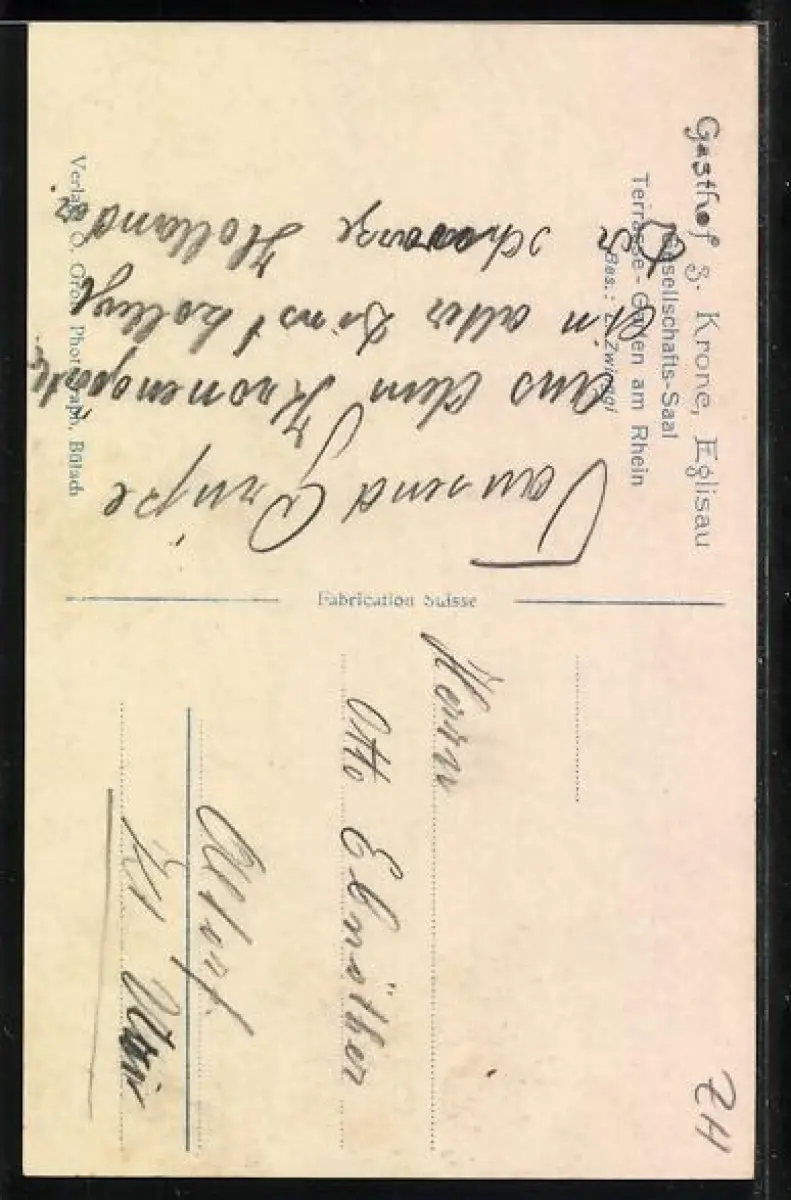 Gasthof z. Krone, Eglisau
Gesellschafts-Saal
Terrasse - Garten am Rhein
Bes.: Zwingli
Tausend Grüße
aus dem Kronengarten
ein alter Dienstkolleg
Der schwarze Holländer
Verlag O. Groß Photograph, Bülach
Fabrication Suisse
Herrn
Otto Ebnöther
Altorf.
Kt Uri
ZH